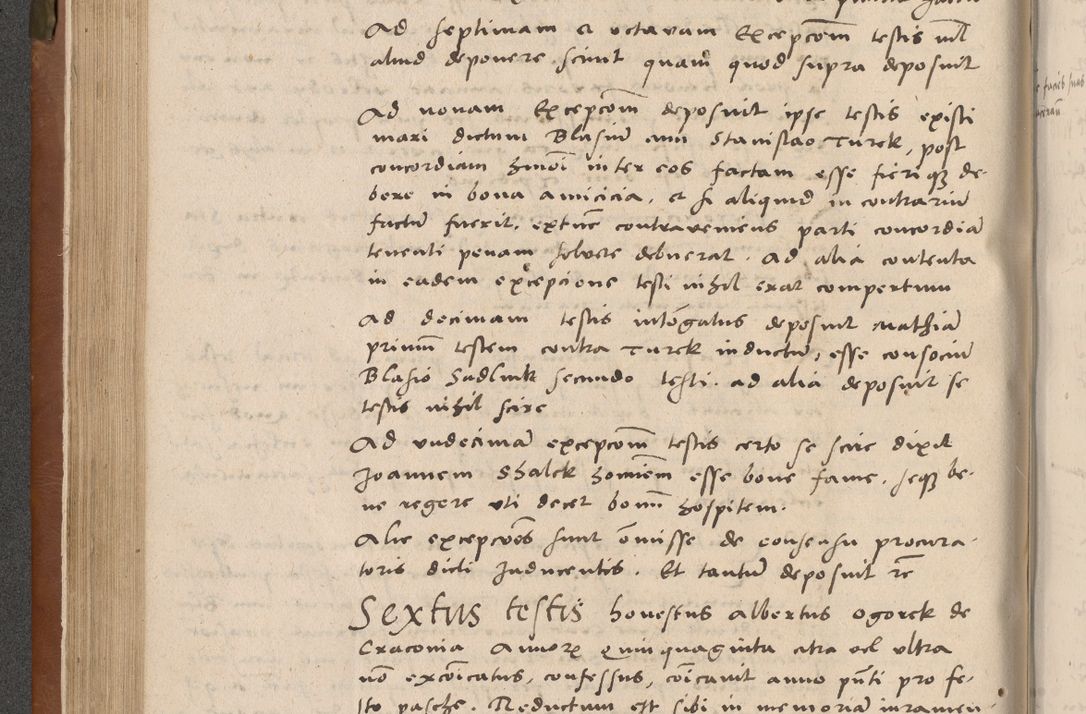 Ad septimam et octavam Excepcōem testis nil
aliud deponere scivit quam quod supra deposuit
Ad nonam Excepcōem deposuit ipse testis existi
mari dictum Blasiū cum Stanislao Turek, post
concordiam hmōi inter eos factam esse fierique de-
bere in bona amicicia. et si aliquid in contrariū
factū fuerit. extunc contraveniens parti concordiā
tenenti penam solvere debuerat. Ad alia contenta
in eadem excepcione testi nihil erat compertum
Ad decimam testis intōgatus deposuit Mathiā
primū testem contra Turek inductū, esse consociū
Blasio Sadlink secundo testi. ad alia deposuit se
testis nihil scire
Ad undecimā excepcōem testis certo se scire dixit
Joannem Shalek hominem esse bone fame. seque be-
ne regere uti decet bonū hospitem.
Alie excepcōes sunt ōmisse de consensu procura-
toris dicti Inducentis. Et tantū deposuit rc
Sextus testis honestus Albertus Ogorek de
Cracovia Annorum Quinquaginta citra vel ultra
nō excōicatus, confessus, cōicavit anno pñti pro fe-
sto pasche. Reductum est sibi in memoriā iuramen-